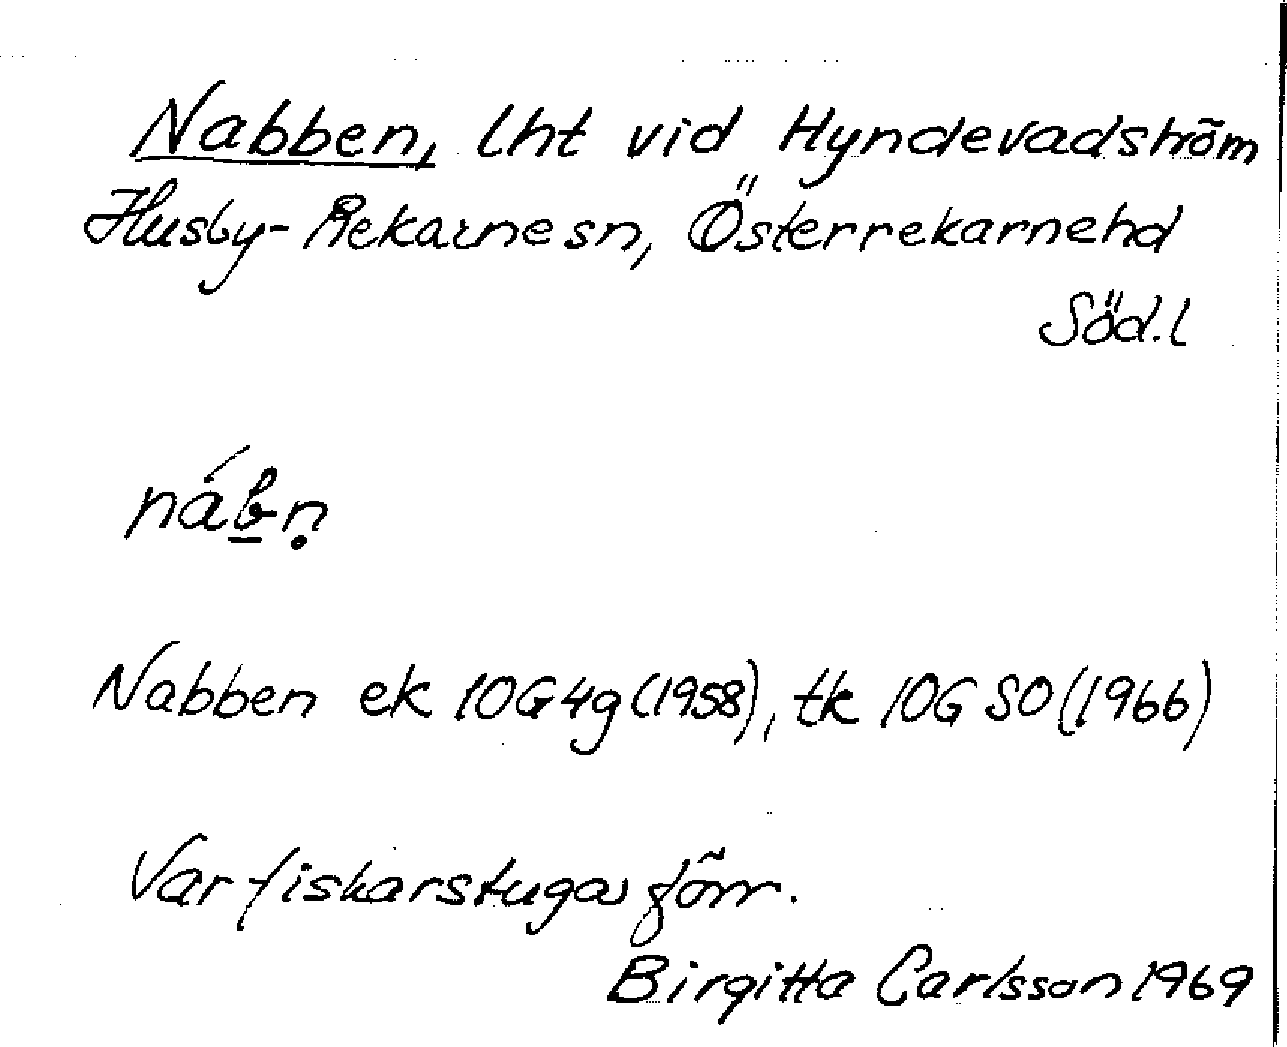 Nabben, lht vid Hyndevadström
Husby-Rekarne sn, Österrekarne hd
Söd.l
náb̲ṇ
Nabben ek 10G4g(1958), tk 10G SO(1966)
Var fiskarstuga förr.
Birgitta Carlsson 1969